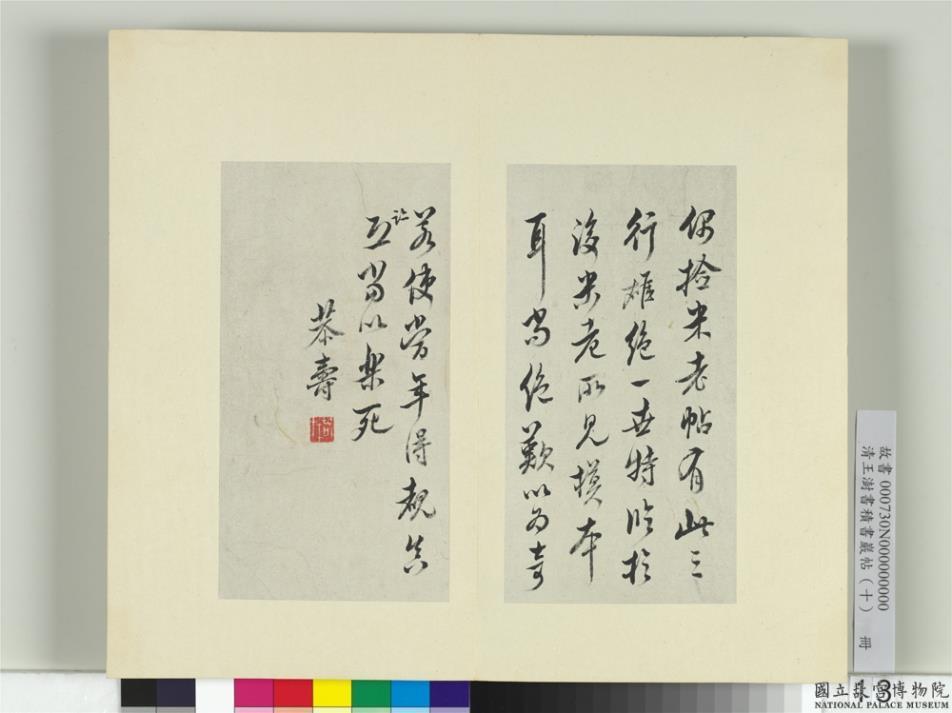 偶拾米老帖有此三
行雄絕一世特臨於
後米老所見模本
耳尚絕歎以為奇
若使當年得覩真
跡
當以樂死
恭壽
故書 000730N000000000
清王澍書積書巖帖(十) 冊
13
國立故宮博物院
NATIONAL PALACE MUSEUM